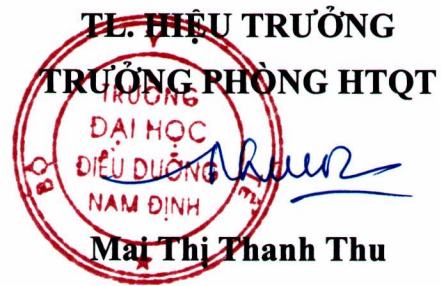 TL. HIỆU TRƯỞNG
TRƯỞNG PHÒNG HTQT
TRƯỜNG
ĐẠI HỌC
ĐIỀU DƯỠNG
NAM ĐỊNH
BỘ
Mai Thị Thanh Thu